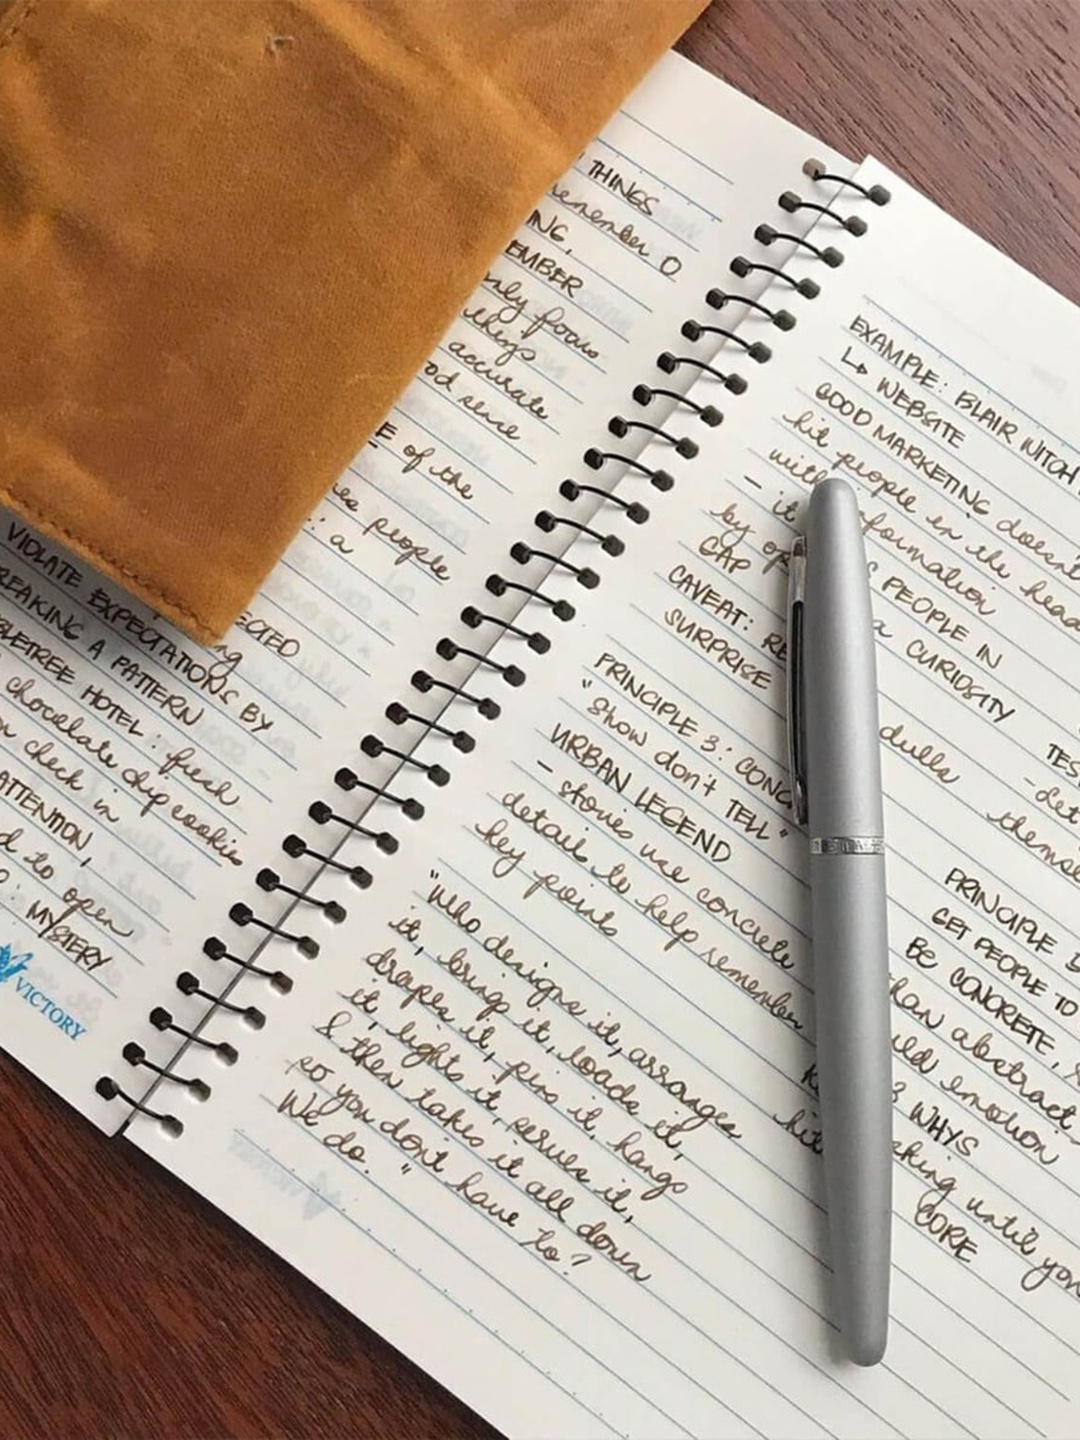 THINGS
remember 0
ING,
EMBER
only focus
things
accurate
od sense
E of the
es people
" a
ECTED
ng
VIOLATE EXPECTATIONS BY
REAKING A PATTERN
BLETREE HOTEL: fresh
chocolate chip cookies
n check in
ATTENTION,
d to open
: MYSTERY
VICTORY
EXAMPLE: BLAIR WITCH
↳ WEBSITE
GOOD MARKETING doesn't
hit people in the head
with information
- it
by op S PEOPLE IN
GAP a CURIOSITY
CAVEAT: RE
SURPRISE dulls
PRINCIPLE 3: CONC
"Show don't TELL"
URBAN LEGEND
- stories use concrete
details to help remember
key points
"Who designs it, arranges
it, brings it, loads it,
drapes it, pins it, hangs
it, lights it, serves it,
& then takes it all down
so you don't have to?
We do."
TES
- Let
themse
PRINCIPLE
GET PEOPLE TO
BE CONCRETE,
than abstract
uld emotion
3 WHYS
hit
king until you
CORE